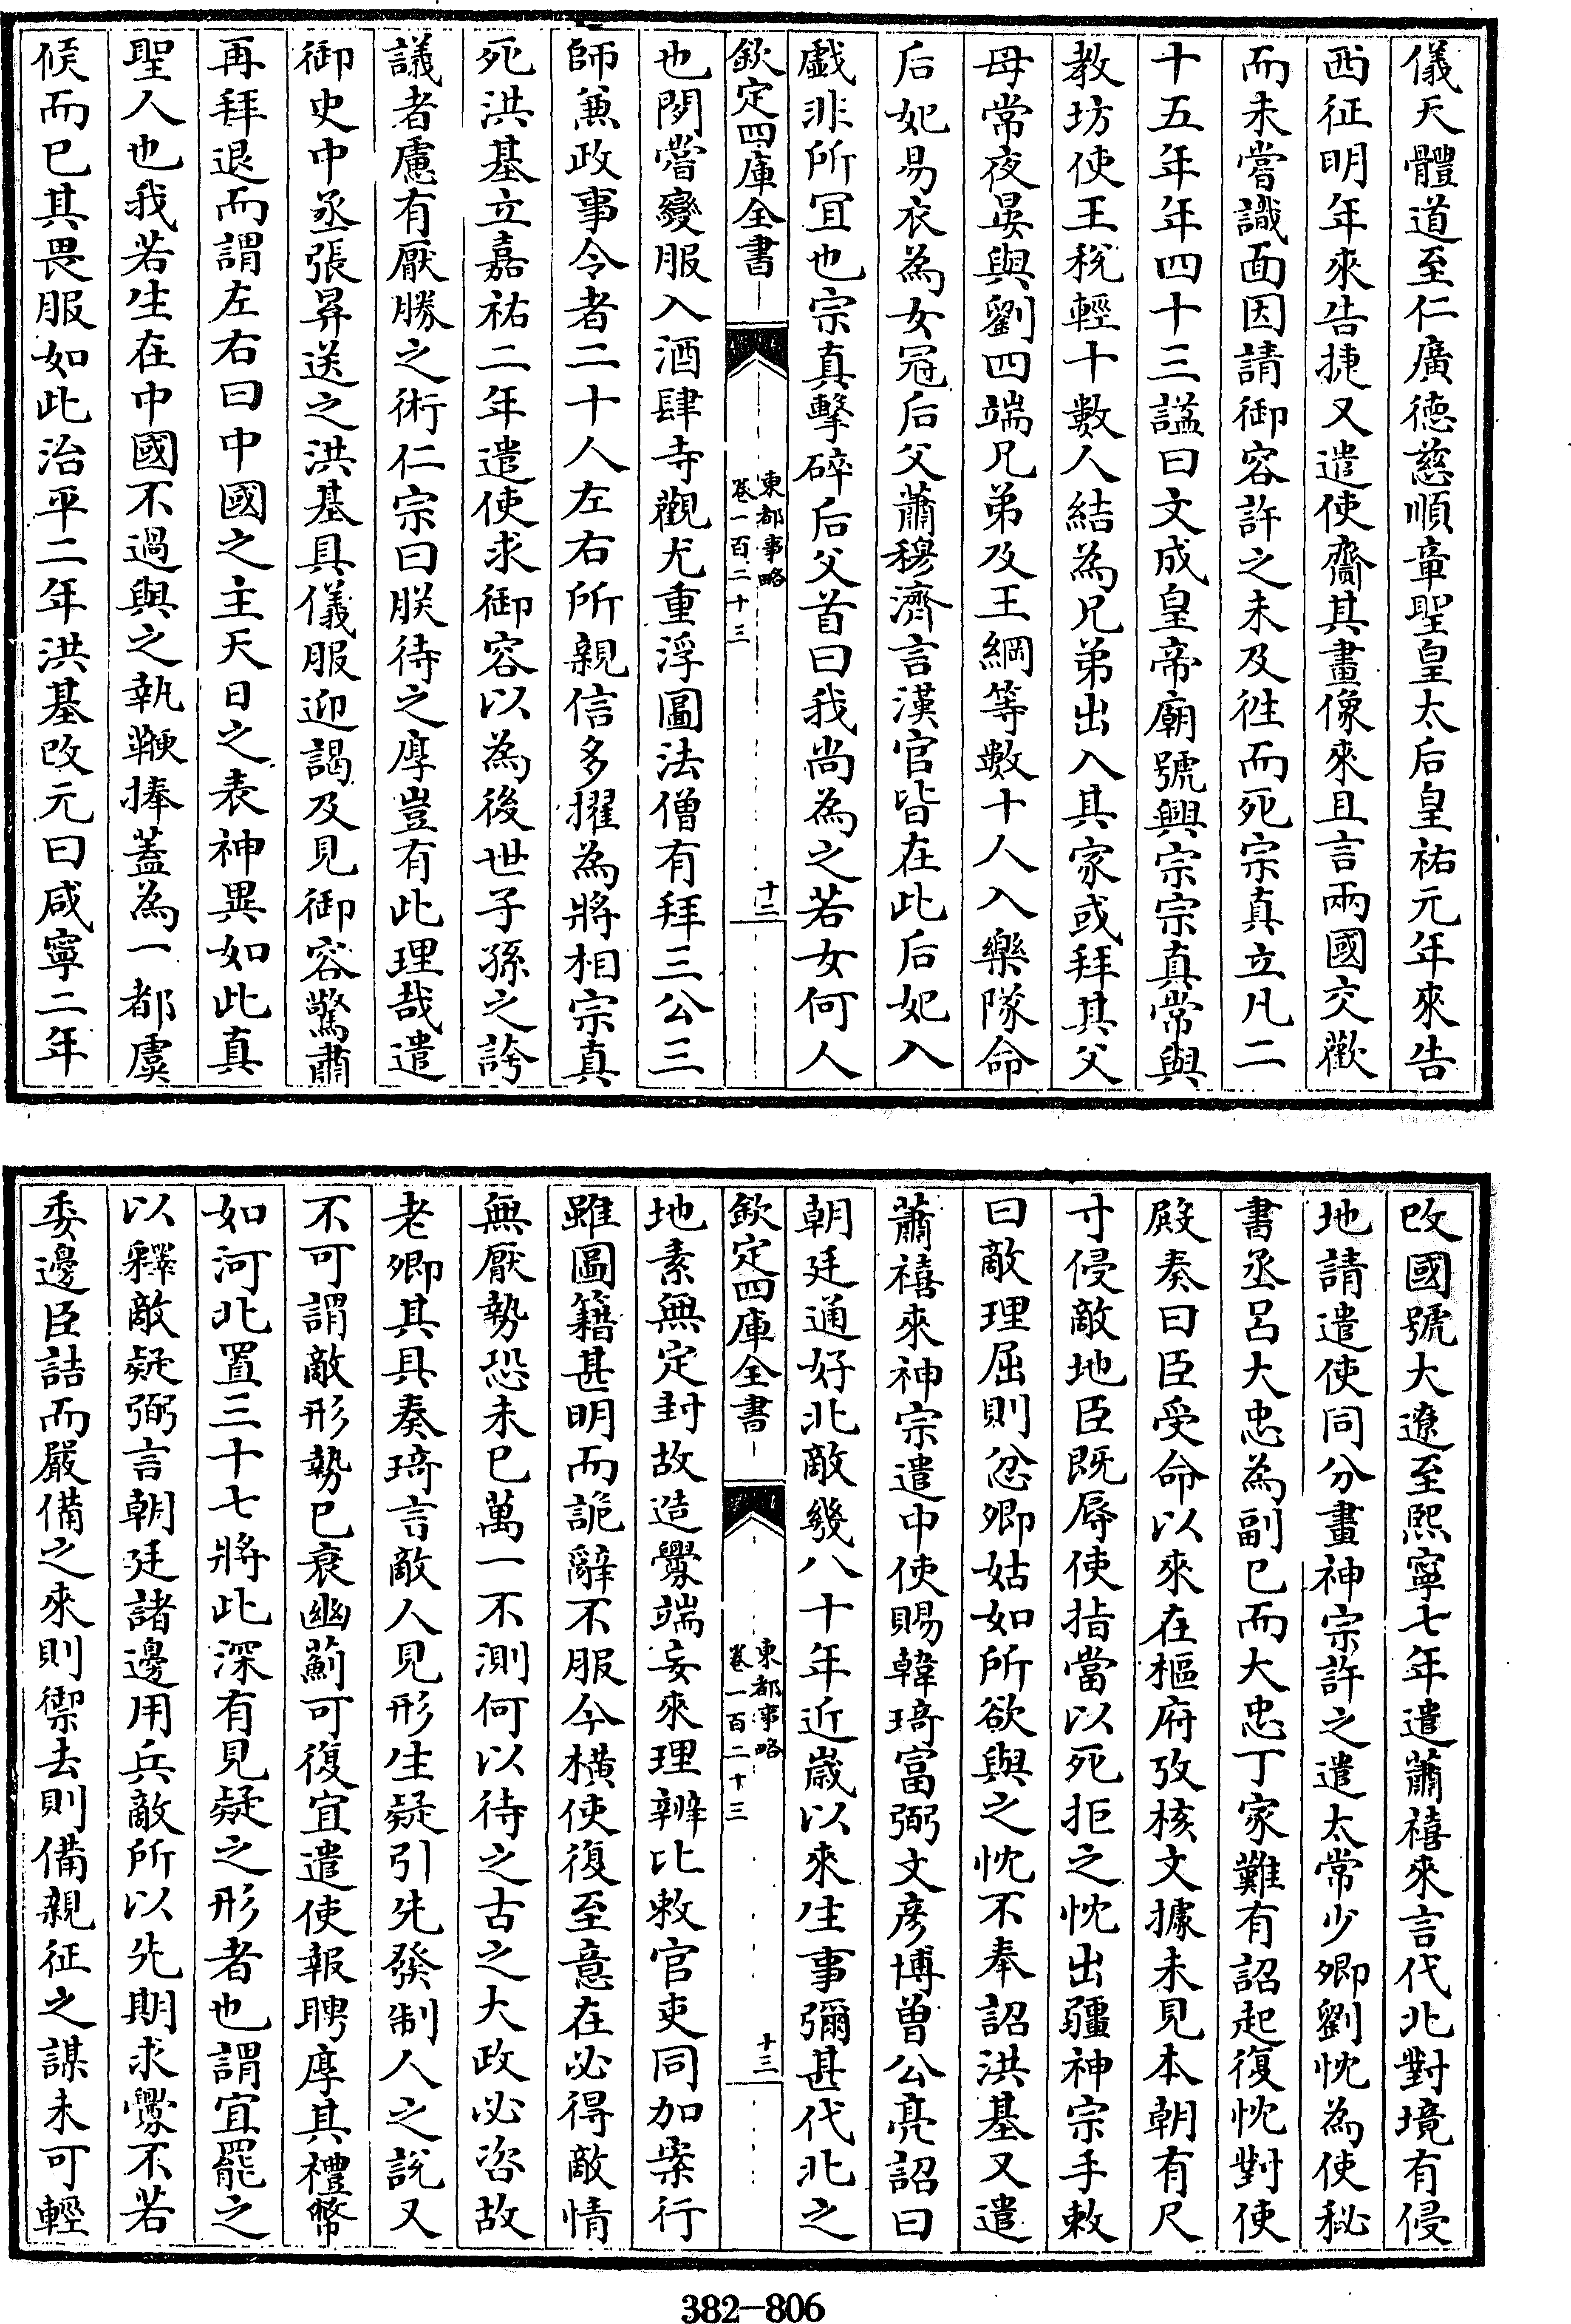 儀天體道至仁廣德慈順章聖皇太后皇祐元年來告
西征明年來告捷又遣使齎其畫像來且言兩國交歡
而未嘗識面因請御容許之未及徃而死宗真立凡二
十五年年四十三諡曰文成皇帝廟號興宗宗真常與
教坊使王税輕十數人結為兄弟出入其家或拜其父
母常夜宴與劉四端兄弟及王綱等數十人入樂隊命
后妃易衣為女冠后父蕭穆濟言漢官皆在此后妃入
戲非所宜也宗真擊碎后父首曰我尚為之若女何人
欽定四庫全書
東都事略
卷一百二十三
十二
也閒嘗變服入酒肆寺觀尤重浮圖法僧有拜三公三
師兼政事令者二十人左右所親信多擢為將相宗真
死洪基立嘉祐二年遣使求御容以為後世子孫之誇
議者慮有厭勝之術仁宗曰朕待之厚豈有此理哉遣
御史中丞張昇送之洪基具儀服迎謁及見御容驚肅
再拜退而謂左右曰中國之主天日之表神異如此真
聖人也我若生在中國不過與之執鞭捧蓋為一都虞
候而已其畏服如此治平二年洪基改元曰咸寧二年
改國號大遼至熙寧七年遣蕭禧來言代北對境有侵
地請遣使同分畫神宗許之遣太常少卿劉忱為使秘
書丞呂大忠為副已而大忠丁家難有詔起復忱對使
殿奏曰臣受命以來在樞府攷核文據未見本朝有尺
寸侵敵地臣既辱使指當以死拒之忱出疆神宗手敕
曰敵理屈則忿卿姑如所欲與之忱不奉詔洪基又遣
蕭禧來神宗遣中使賜韓琦富弼文彥博曾公亮詔曰
朝廷通好北敵幾八十年近歲以來生事彌甚代北之
欽定四庫全書
東都事略
卷一百二十三
十三
地素無定封故造釁端妄來理辨比敕官吏同加案行
雖圖籍甚明而詭辭不服今橫使復至意在必得敵情
無厭勢恐未已萬一不測何以待之古之大政必咨故
老卿其具奏琦言敵人見形生疑引先發制人之說又
不可謂敵形勢已衰幽薊可復宜遣使報聘厚其禮幣
如河北置三十七將此深有見疑之形者也謂宜罷之
以釋敵疑弼言朝廷諸邊用兵敵所以先期求釁不若
委邊臣詰而嚴備之來則禦去則備親征之謀未可輕
382-806